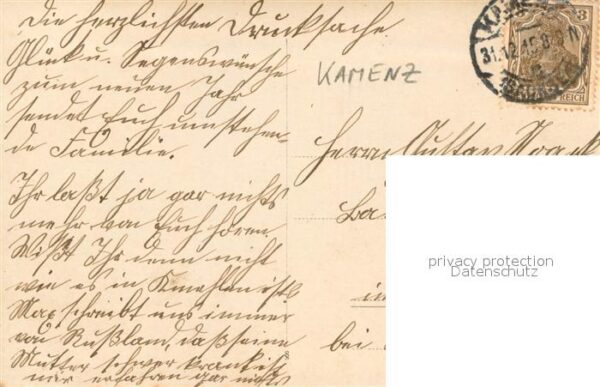 Die herzlichsten Drucksache
Glück u. Segenswünsche
zum neuen Jahr
sendet Euch umstehen-
de Familie.
Ihr laßt ja gar nichts
mehr von Euch hören.
Wißt Ihr denn nicht
wie es in Kmehlen ist.
Max schreibt uns immer
von Rußland, daß seine
Mutter schwer krank ist
wir erfahren gar nichts
KAMENZ
31.12.15.8-9N
3
REICH
Herrn Gustav Noack
bei
privacy protection
Datenschutz